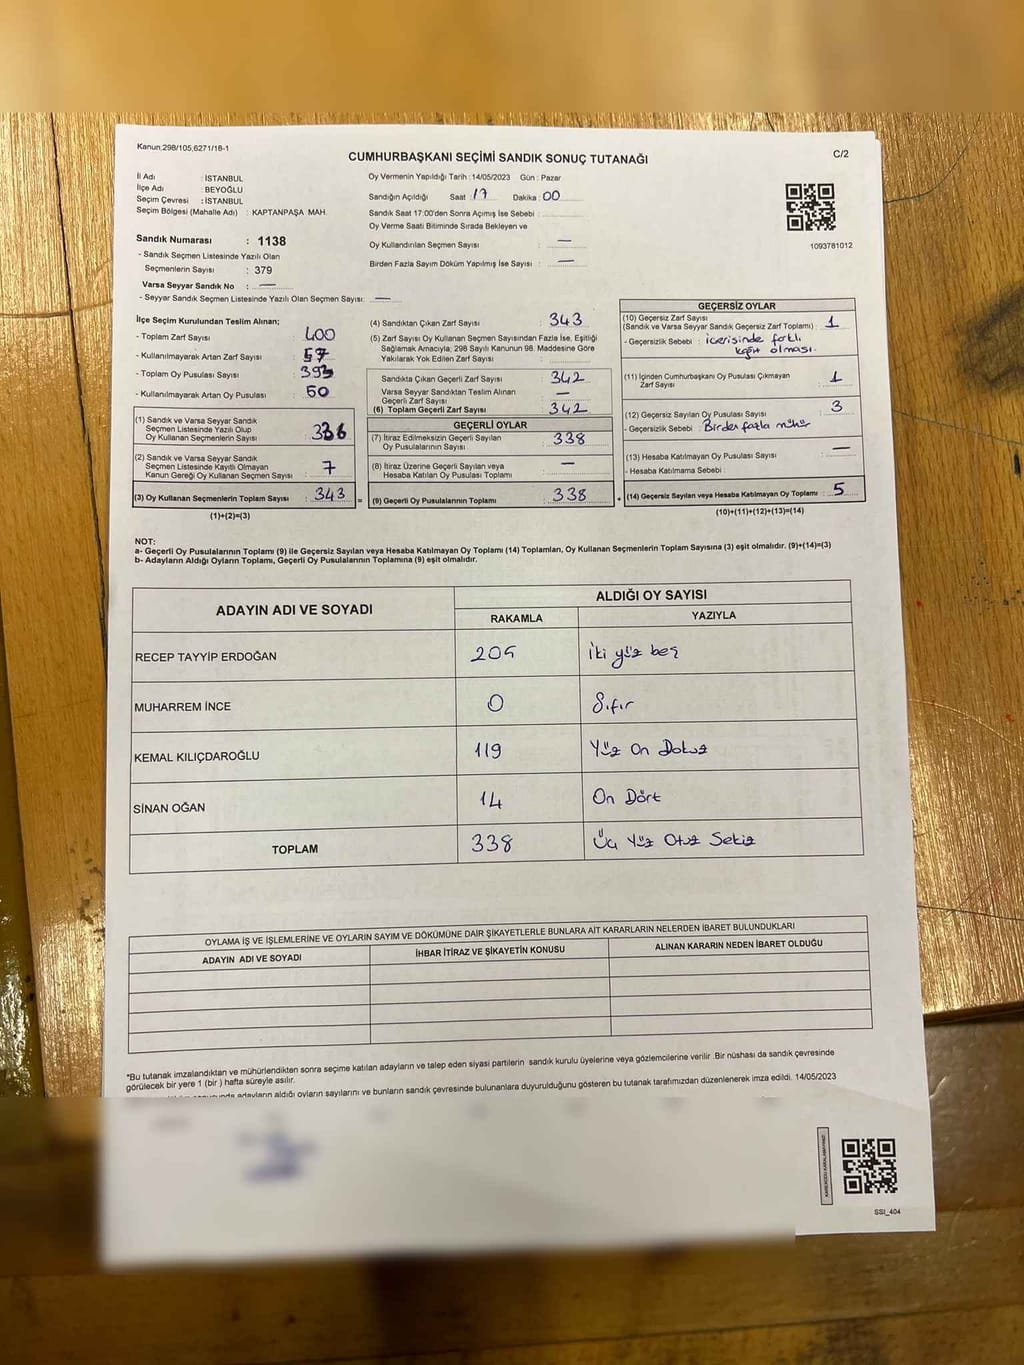 Kanun:298/105,6271/18-1
CUMHURBAŞKANI SEÇİMİ SANDIK SONUÇ TUTANAĞI
C/2
İl Adı : İSTANBUL
İlçe Adı : BEYOĞLU
Seçim Çevresi : İSTANBUL
Seçim Bölgesi (Mahalle Adı) : KAPTANPAŞA MAH.
Sandık Numarası : 1138
- Sandık Seçmen Listesinde Yazılı Olan
Seçmenlerin Sayısı : 379
Varsa Seyyar Sandık No : —
- Seyyar Sandık Seçmen Listesinde Yazılı Olan Seçmen Sayısı: —
Oy Vermenin Yapıldığı Tarih :14/05/2023 Gün : Pazar
Sandığın Açıldığı Saat : 17 Dakika : 00
Sandık Saat 17:00'den Sonra Açımış İse Sebebi :
Oy Verme Saati Bitiminde Sırada Bekleyen ve
Oy Kullandırılan Seçmen Sayısı : —
Birden Fazla Sayım Döküm Yapılmış İse Sayısı : —
1093781012
İlçe Seçim Kurulundan Teslim Alınan;
- Toplam Zarf Sayısı : 400
- Kullanılmayarak Artan Zarf Sayısı : 57
- Toplam Oy Pusulası Sayısı : 393
- Kullanılmayarak Artan Oy Pusulası : 50
(1) Sandık ve Varsa Seyyar Sandık
Seçmen Listesinde Yazılı Olup
Oy Kullanan Seçmenlerin Sayısı : 336
(2) Sandık ve Varsa Seyyar Sandık
Seçmen Listesinde Kayıtlı Olmayan
Kanun Gereği Oy Kullanan Seçmen Sayısı : 7
(3) Oy Kullanan Seçmenlerin Toplam Sayısı : 343
(1)+(2)=(3)
=
(4) Sandıktan Çıkan Zarf Sayısı : 343
(5) Zarf Sayısı Oy Kullanan Seçmen Sayısından Fazla İse, Eşitliği
Sağlamak Amacıyla; 298 Sayılı Kanunun 98. Maddesine Göre
Yakılarak Yok Edilen Zarf Sayısı :
Sandıkta Çıkan Geçerli Zarf Sayısı : 342
Varsa Seyyar Sandıktan Teslim Alınan
Geçerli Zarf Sayısı : —
(6) Toplam Geçerli Zarf Sayısı : 342
GEÇERLİ OYLAR
(7) İtiraz Edilmeksizin Geçerli Sayılan
Oy Pusulalarının Sayısı : 338
(8) İtiraz Üzerine Geçerli Sayılan veya
Hesaba Katılan Oy Pusulası Toplamı : —
(9) Geçerli Oy Pusulalarının Toplamı : 338
+
GEÇERSİZ OYLAR
(10) Geçersiz Zarf Sayısı
(Sandık ve Varsa Seyyar Sandık Geçersiz Zarf Toplamı) : 1
- Geçersizlik Sebebi : içerisinde farklı
kağıt olması.
(11) İçinden Cumhurbaşkanı Oy Pusulası Çıkmayan
Zarf Sayısı : 1
(12) Geçersiz Sayılan Oy Pusulası Sayısı : 3
- Geçersizlik Sebebi : Birden fazla mühür
(13) Hesaba Katılmayan Oy Pusulası Sayısı : —
- Hesaba Katılmama Sebebi :
(14) Geçersiz Sayılan veya Hesaba Katılmayan Oy Toplamı : 5
(10)+(11)+(12)+(13)=(14)
NOT:
a- Geçerli Oy Pusulalarının Toplamı (9) ile Geçersiz Sayılan veya Hesaba Katılmayan Oy Toplamı (14) Toplamları, Oy Kullanan Seçmenlerin Toplam Sayısına (3) eşit olmalıdır. (9)+(14)=(3)
b- Adayların Aldığı Oyların Toplamı, Geçerli Oy Pusulalarının Toplamına (9) eşit olmalıdır.
ADAYIN ADI VE SOYADI
ALDIĞI OY SAYISI
RAKAMLA YAZIYLA
RECEP TAYYİP ERDOĞAN 205 İki yüz beş
MUHARREM İNCE 0 Sıfır
KEMAL KILIÇDAROĞLU 119 Yüz On Dokuz
SİNAN OĞAN 14 On Dört
TOPLAM 338 Üç Yüz Otuz Sekiz
OYLAMA İŞ VE İŞLEMLERİNE VE OYLARIN SAYIM VE DÖKÜMÜNE DAİR ŞİKAYETLERLE BUNLARA AİT KARARLARIN NELERDEN İBARET BULUNDUKLARI
ADAYIN ADI VE SOYADI İHBAR İTİRAZ VE ŞİKAYETİN KONUSU ALINAN KARARIN NEDEN İBARET OLDUĞU
*Bu tutanak imzalandıktan ve mühürlendikten sonra seçime katılan adayların ve talep eden siyasi partilerin sandık kurulu üyelerine veya gözlemcilerine verilir .Bir nüshası da sandık çevresinde
görülecek bir yere 1 (bir ) hafta süreyle asılır.
adayların aldığı oyların sayılarını ve bunların sandık çevresinde bulunanlara duyurulduğunu gösteren bu tutanak tarafımızdan düzenlenerek imza edildi. 14/05/2023
SSI_404